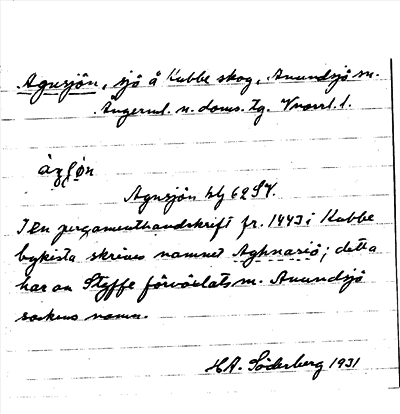 Agnsjön, sjö å Kubbe skog, Anundsjö sn.
Ångerml. n. doms. tg. Vnorrl. l.
Agnsjön bl 62 SV.
I en pergamenthandskrift fr. 1443 i Kubbe
bykista skrives namnet Aghnasiö; detta
har av Styffe förväxlats m. Anundsjö
sockens namn.
HA. Söderberg 1931